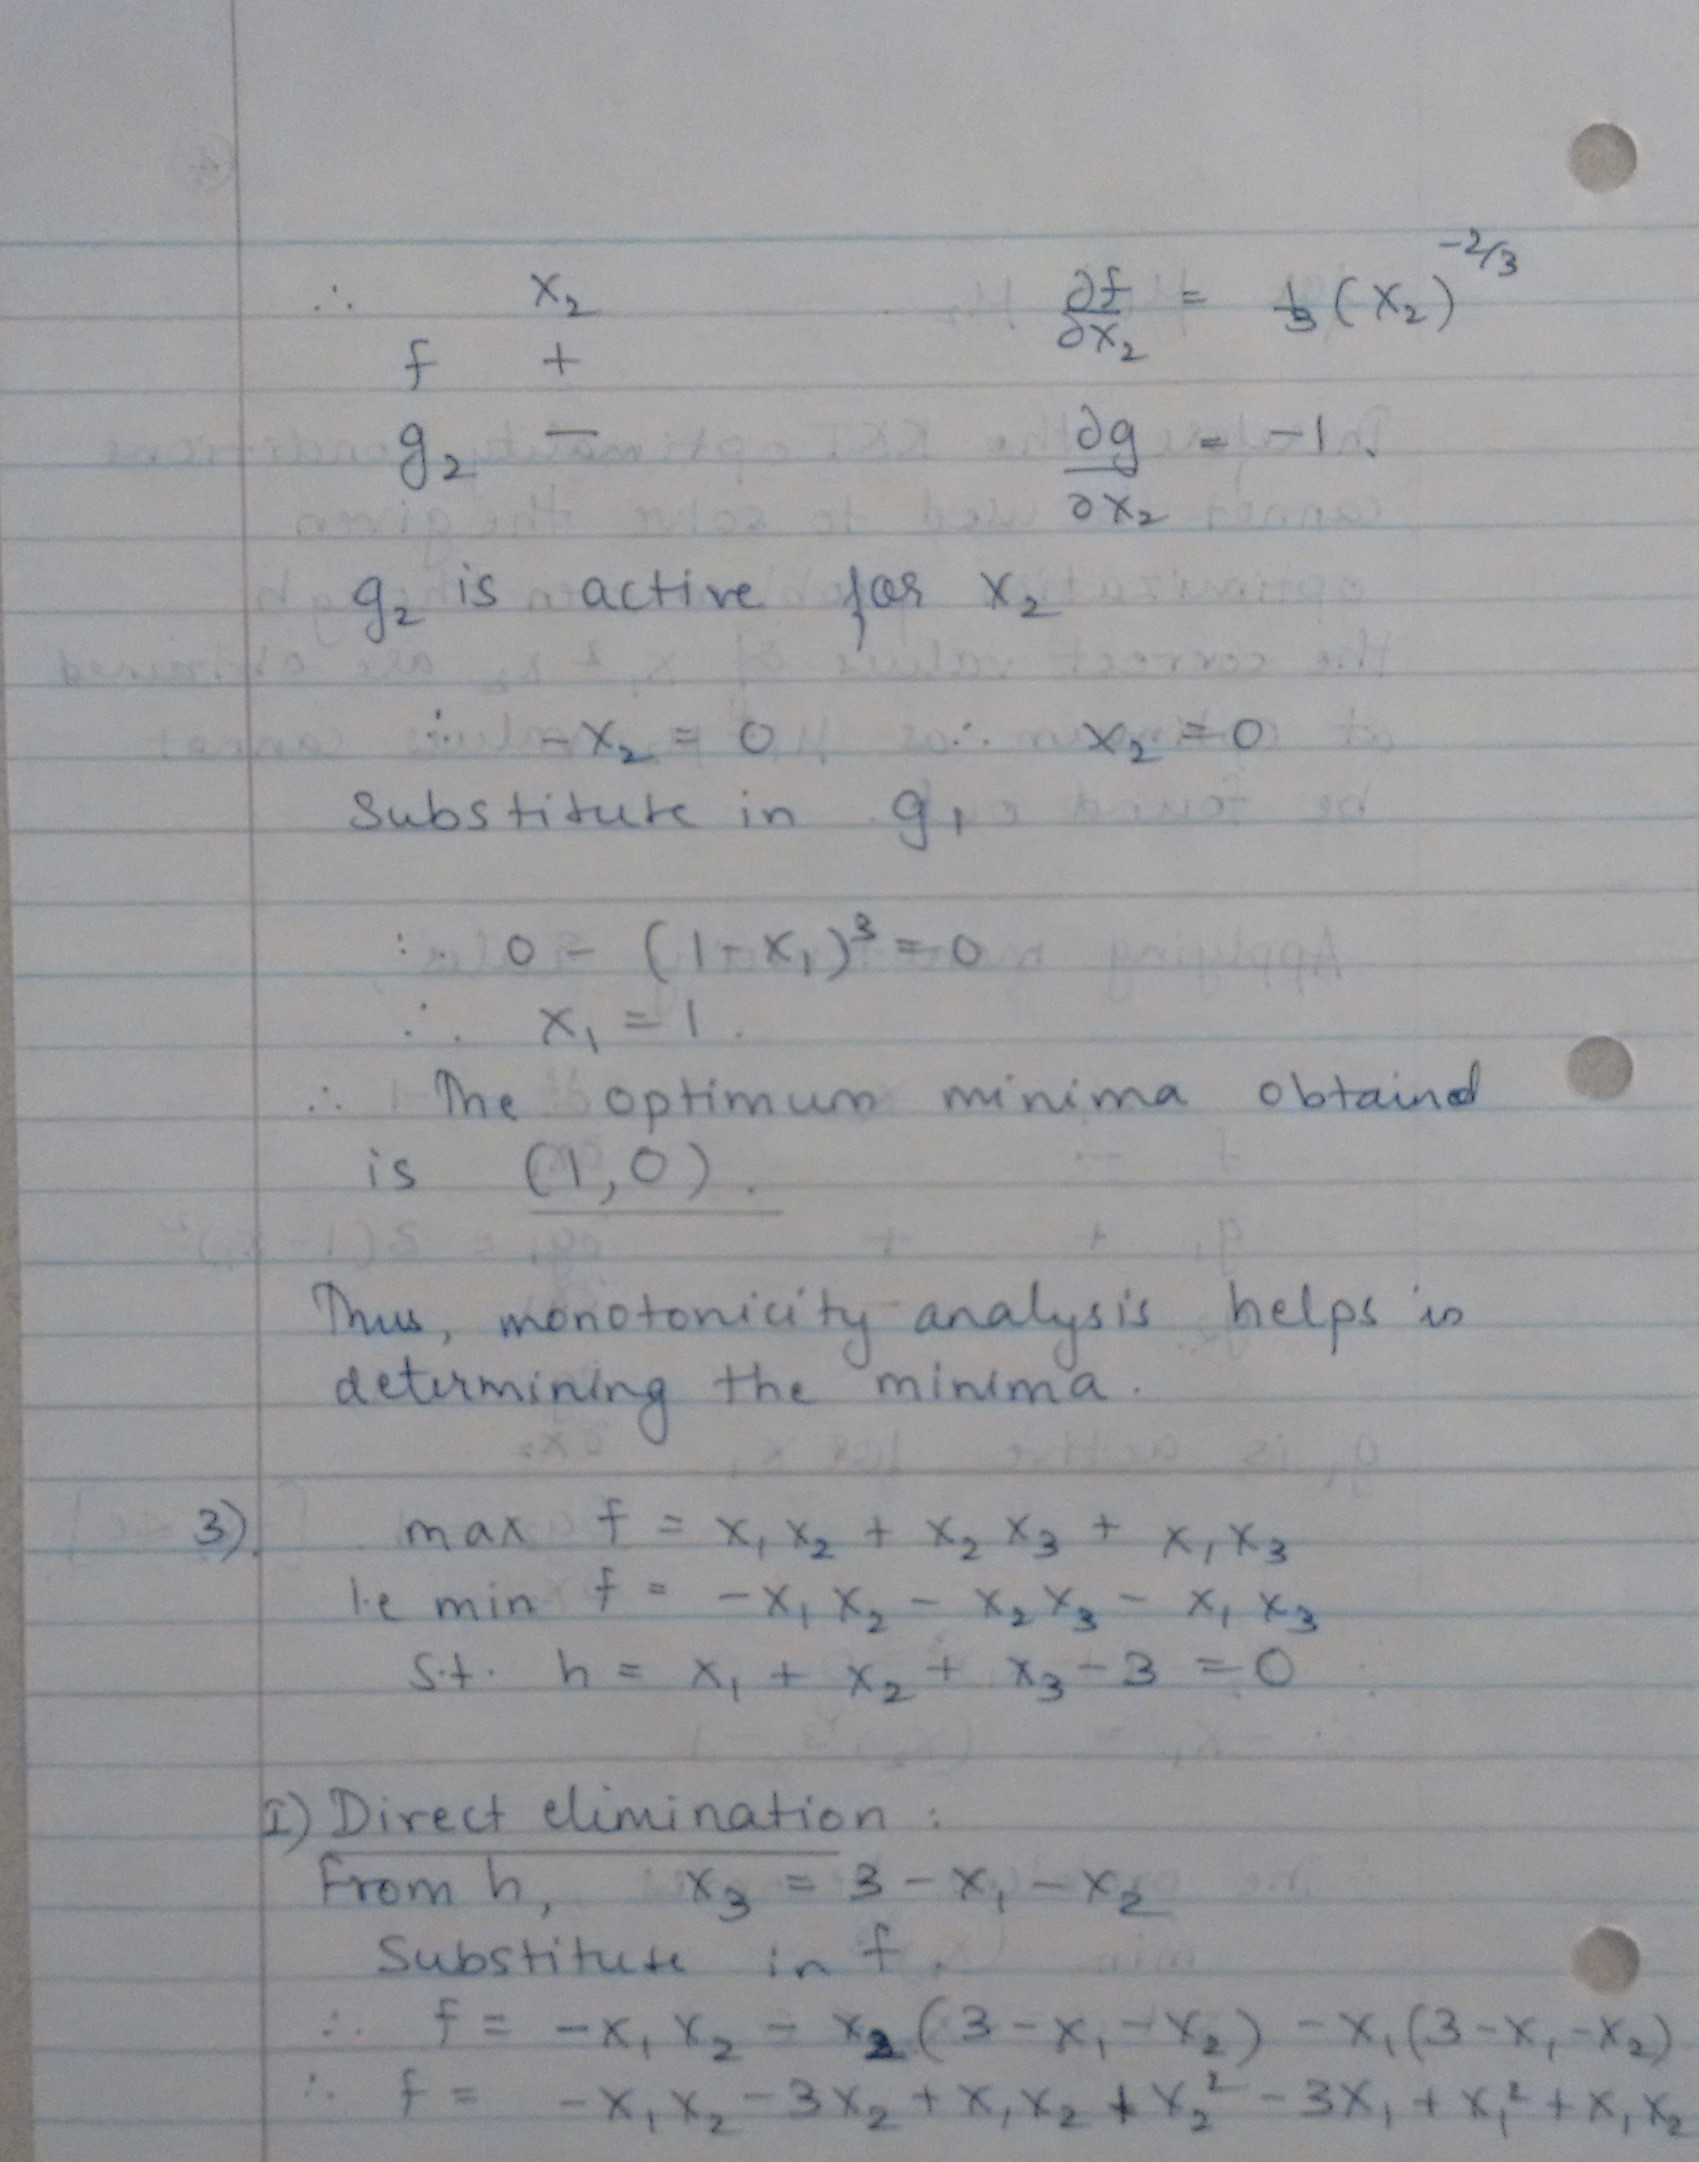 ∴ x₂ ∂f/∂x₂ = 1/3 (x₂)^(-2/3)
f +
g₂ − ∂g/∂x₂ = -1.
g₂ is active for x₂
∴ -x₂ = 0 ∴ x₂ = 0
Substitute in g₁
∴ 0 - (1-x₁)³ = 0
∴ x₁ = 1.
∴ The optimum minima obtained
is (1,0).
Thus, monotonicity analysis helps in
determining the minima.
3). max f = x₁x₂ + x₂x₃ + x₁x₃
i.e min f = -x₁x₂ - x₂x₃ - x₁x₃
s.t. h = x₁ + x₂ + x₃ - 3 = 0
I) Direct elimination :
From h, x₃ = 3 - x₁ - x₂
Substitute in f.
∴ f = -x₁x₂ - x₂(3-x₁-x₂) - x₁(3-x₁-x₂)
∴ f = -x₁x₂ - 3x₂ + x₁x₂ + x₂² - 3x₁ + x₁² + x₁x₂